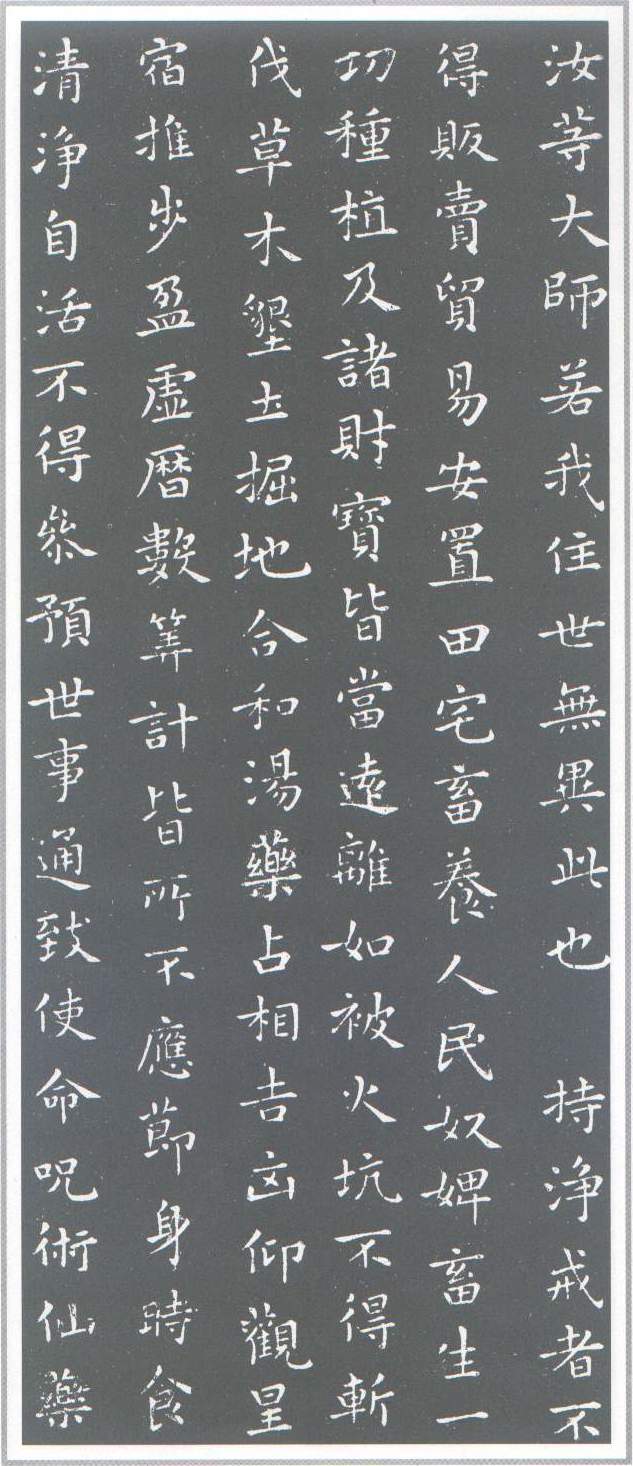 汝等大師若我住世無異此也　持淨戒者不
得販賣貿易安置田宅畜養人民奴婢畜生一
切種植及諸財寶皆當遠離如被火坑不得斬
伐草木墾土掘地合和湯藥占相吉凶仰觀星
宿推步盈虛曆數筭計皆所不應節身時食
清淨自活不得參預世事通致使命呪術仙藥